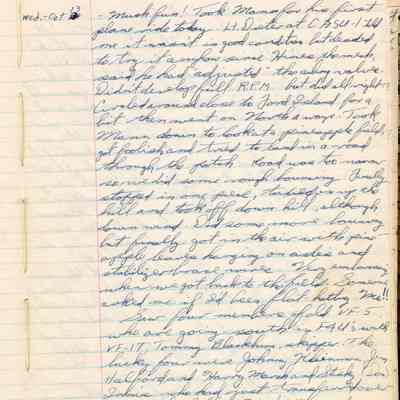 Wed. - Oct 13
- Much fun! Took Mann for his first
plane ride today. Lt. Dieter at CASU-1 told
me it wasn't in good condition but decided
to try it anyhow since Hines, the mech,
said he had adjusted the
Didn't develop full R.P.M. but did all right.
Circled around close to Ford Island for a
bit then went on North a ways. Took
Mann down to look at a pineapple field,
got foolish and tried to land in a road
through the patch. Road was too narrow
so we did some rough bouncing. Finally
stopped in one piece, taxied up the
hill and took off down hill, although
down wind. Did some more bouncing
but finally got in the air with pine-
apple leaves hanging on axles and
stabilizer brace wires. Very embarrassing
when we got back to the field. Someone
asked me if I'd been flat hatting. Me!!
Saw four members of old VF-5
who are going south in F4U's with
VF-17, Tommy Blackburn, skipper. The
lucky four were Johnny Kleinman, Jim
Halford and Harry March and
who had just transferred over